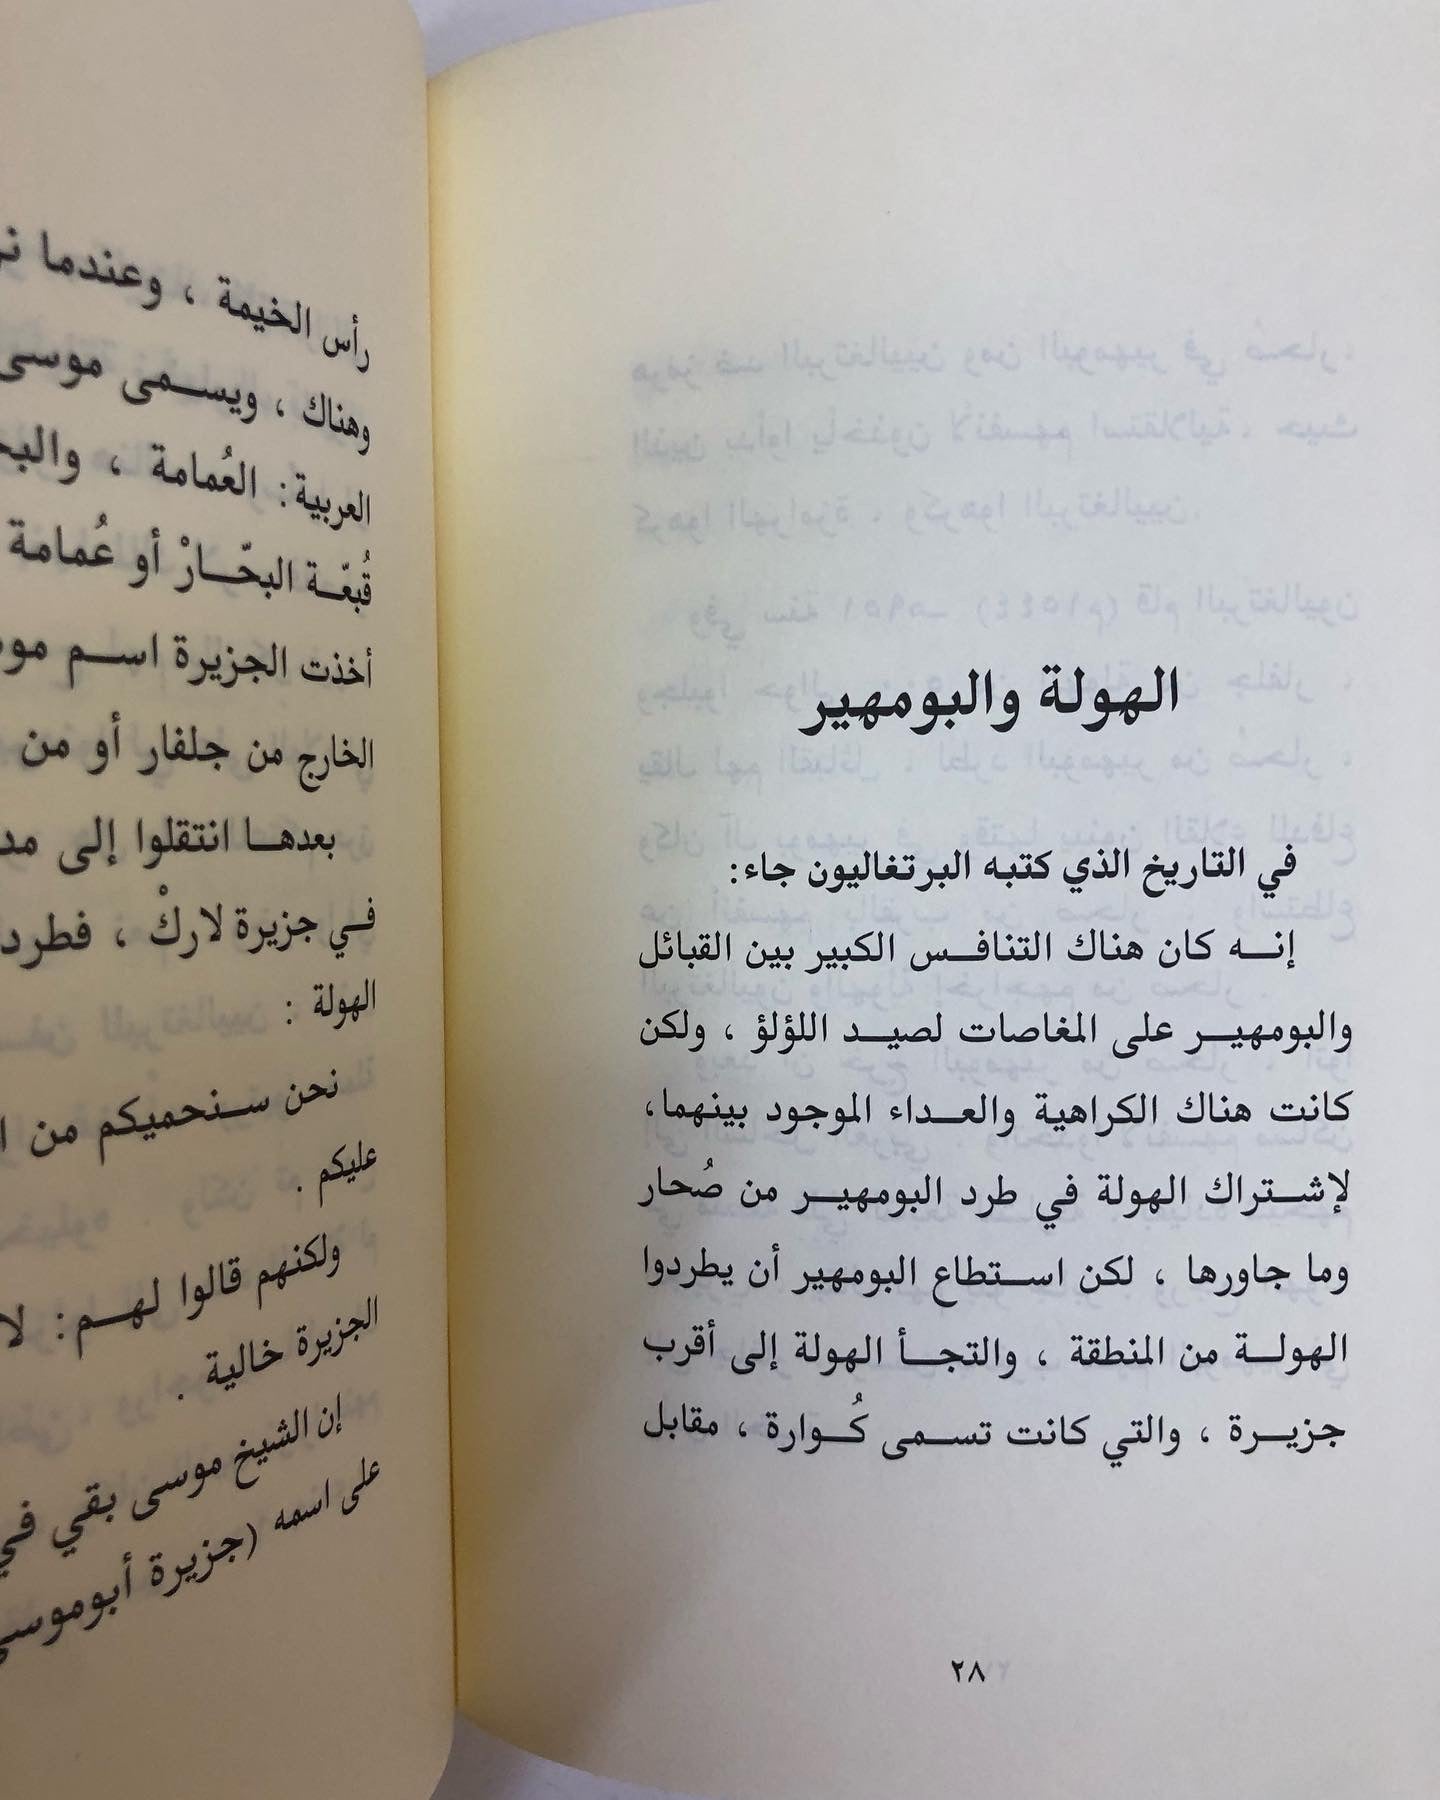 الهولة والبومهير
في التاريخ الذي كتبه البرتغاليون جاء:
إنـــه كان هناك التنافـس الكبير بين القبائل
والبومهيـــر على المغاصات لصيـــد اللؤلؤ ، ولكن
كانت هناك الكراهية والعـداء الموجود بينهما،
لإشـــتراك الهولة في طرد البومهيـــر من صُحار
وما جاورها ، لكن اســتطاع البومهير أن يطردوا
الهولـــة من المنطقة ، والتجــأ الهولة إلى أقرب
جزيـــرة ، والتي كانت تســمى كُــوارة ، مقابل
٢٨
رأس الخيمة ، وعندما
وهناك ، ويســمى موسى
العربية: العُمامة ،
قُبعّــة البحّــارْ أو عُمامة
أخذت الجزيرة اســم
الخارج من جلفار أو من
بعدهــا انتقلوا إلى
فــي جزيرة لاركْ ،
الهولة :
نحن ســنحميكم من
عليكم .
ولكنهم قالوا لهــم: لا
الجزيرة خالية .
إن الشيخ موسى بقي في
على اسمه (جزيرة أبوموسى